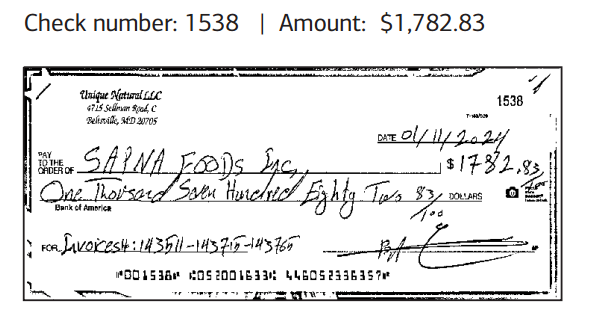 Check number: 1538 | Amount: $1,782.83
Unique Natural LLC
4715 Sellman Road, C
Beltsville, MD 20705
1538
DATE 01/11/2024
PAY TO THE ORDER OF SAPNA FOODS Inc, $1782.83
One Thousand Seven Hundred Eighty Two 83/100 DOLLARS
Bank of America
FOR Invoices#: 143511-143715-143765
⑈001538⑈ ⑆052001633⑆ 446052336357⑈